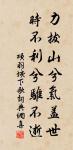 力拔山兮氣蓋世
時不利兮騅不逝
項羽垓下歌詞典網書